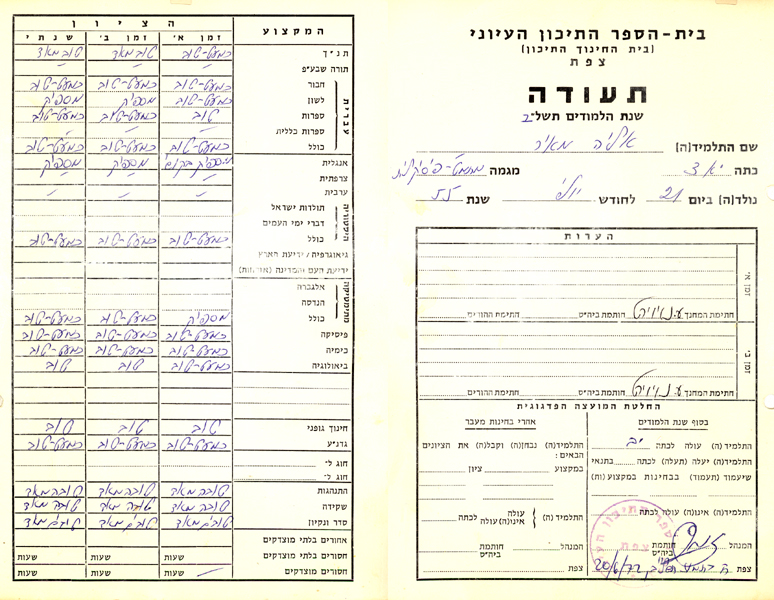 בית-הספר התיכון העיוני
(בית החינוך התיכון)
צפת
תעודה
שנת הלמודים תשל"ב
שם התלמיד(ה) אליה מאיר
כתה יא 3 מגמה
נולד(ה) ביום 21 לחודש יולי שנת 55
הערות
זמן א'
חתימת המחנך חותמת ביה"ס חתימת ההורים
זמן ב'
חתימת המחנך חותמת ביה"ס חתימת ההורים
החלטת המועצה הפדגוגית
בסוף שנת הלמודים
התלמיד (ה) עולה לכתה יב
התלמיד(ה) יעלה (תעלה) לכתה בתנאי
שיעמוד (תעמוד) בבחינות במקצוע (ות)
התלמיד (ה) אינו(ה) עולה לכתה
המנהל חותמת ביה"ס
צפת 20/6/72
אחרי בחינות מעבר
התלמיד(ה) נבחן(ה) וקבל(ה) את הציונים
הבאים:
במקצוע ציון
התלמיד (ה) עולה
אינו(ה) עולה לכתה
המנהל חותמת ביה"ס
צפת
המקצוע הציון
זמן א' זמן ב' שנתי
תנ"ך כמעט-טוב טוב מאד טוב מאד
תורה שבע"פ
עברית
חבור כמעט-טוב כמעט-טוב כמעט-טוב
לשון כמעט-טוב מספיק מספיק
ספרות טוב כמעט-טוב כמעט-טוב
ספרות כללית
כולל כמעט-טוב כמעט-טוב כמעט-טוב
אנגלית מספיק בקושי מספיק מספיק
צרפתית
ערבית
היסטוריה
תולדות ישראל
דברי ימי העמים
כולל כמעט-טוב כמעט-טוב כמעט-טוב
גיאוגרפיה / ידיעת הארץ
ידיעת העם והמדינה (אזרחות)
מתמטיקה
אלגברה
הנדסה
כולל מספיק כמעט-טוב כמעט-טוב
פיסיקה כמעט-טוב כמעט-טוב כמעט-טוב
כימיה כמעט-טוב כמעט-טוב כמעט-טוב
ביאולוגיה כמעט-טוב טוב טוב
חינוך גופני טוב טוב טוב
גדנ"ע כמעט-טוב כמעט-טוב כמעט-טוב
חוג ל-
חוג ל-
התנהגות טובה מאד טובה מאד טובה מאד
שקידה טובה מאד טובה מאד טובה מאד
סדר ונקיון טובים מאד טובים מאד טובים מאד
אחורים בלתי מוצדקים
חסורים בלתי מוצדקים שעות שעות שעות
חסורים מוצדקים שעות שעות שעות